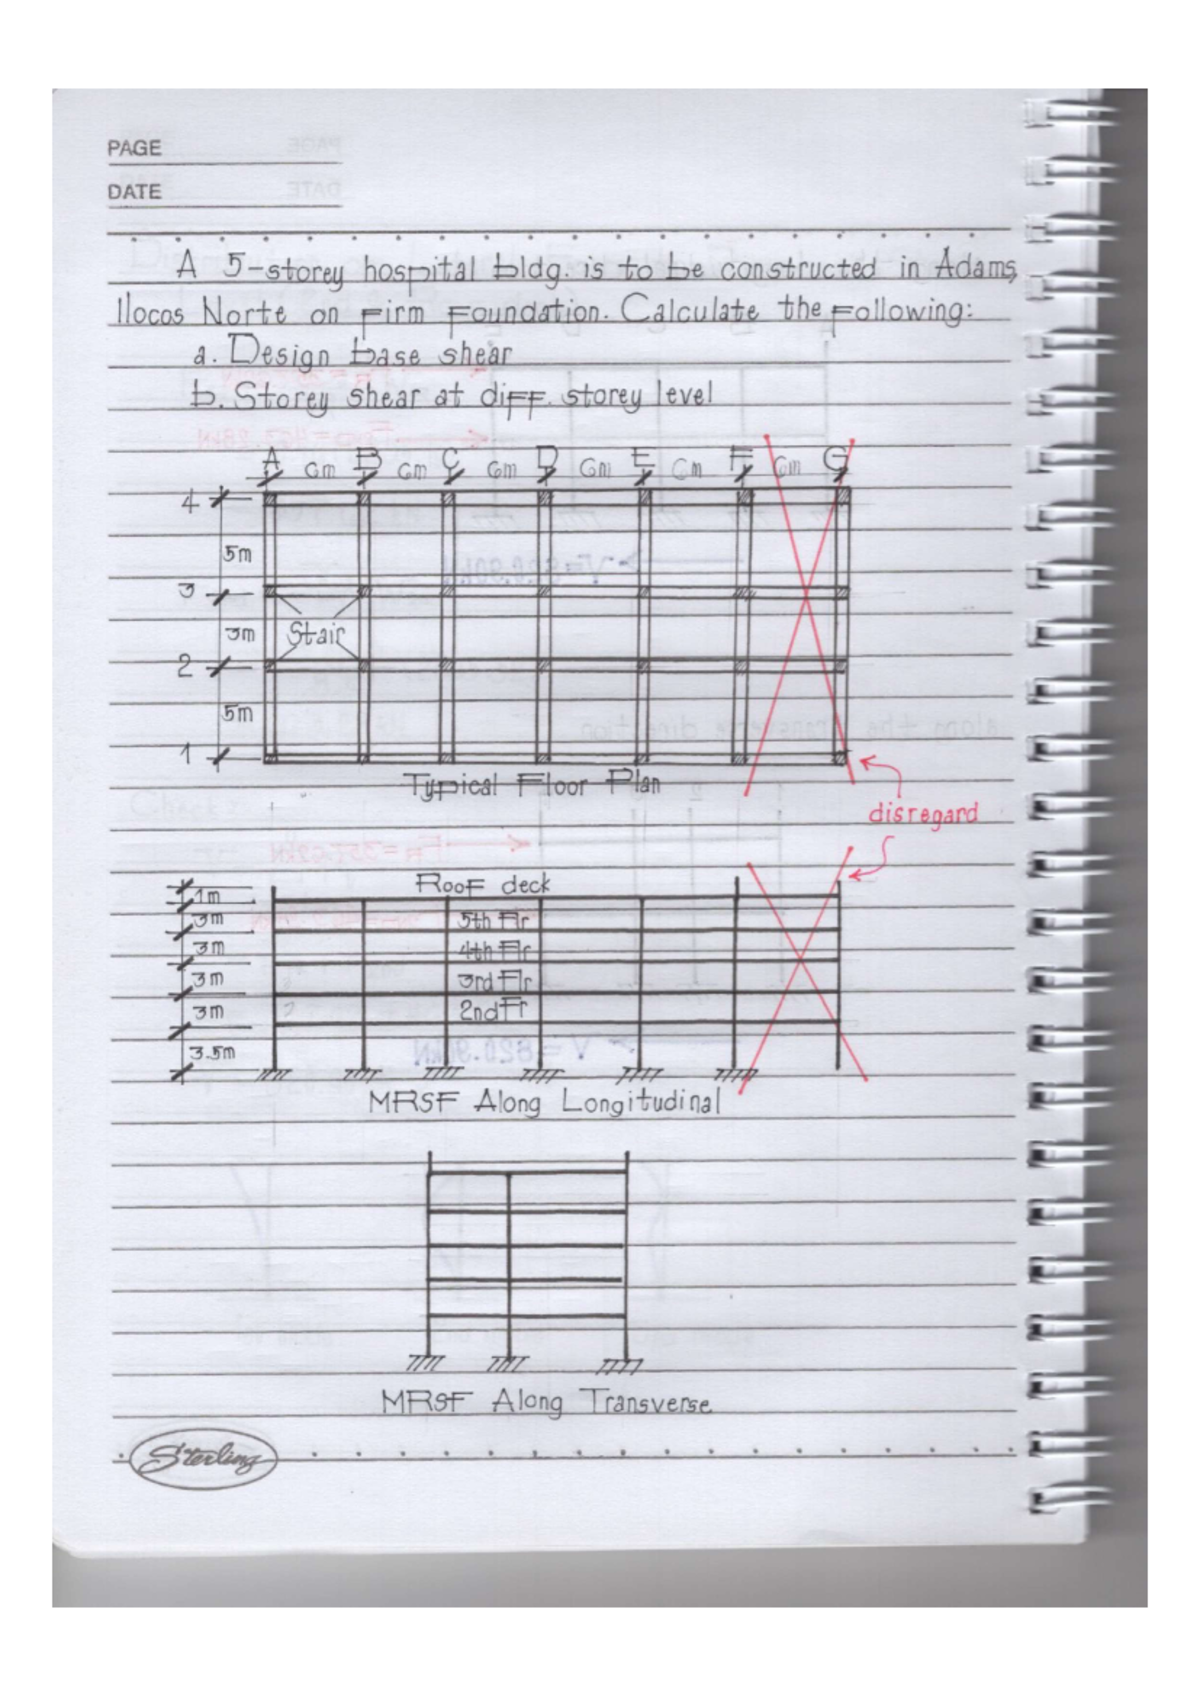 PAGE
DATE
A 5-storey hospital bldg. is to be constructed in Adams,
Ilocos Norte on Firm Foundation. Calculate the following:
a. Design base shear
b. Storey shear at diff. storey level
A 6m B 6m C 6m D 6m E 6m F 6m G
4
5m
3
3m Stair
2
5m
1
Typical Floor Plan
disregard
Roof deck
1m
3m 5th Flr
3m 4th Flr
3m 3rd Flr
3m 2nd Fr
3.5m
MRSF Along Longitudinal
MRSF Along Transverse
Sterling